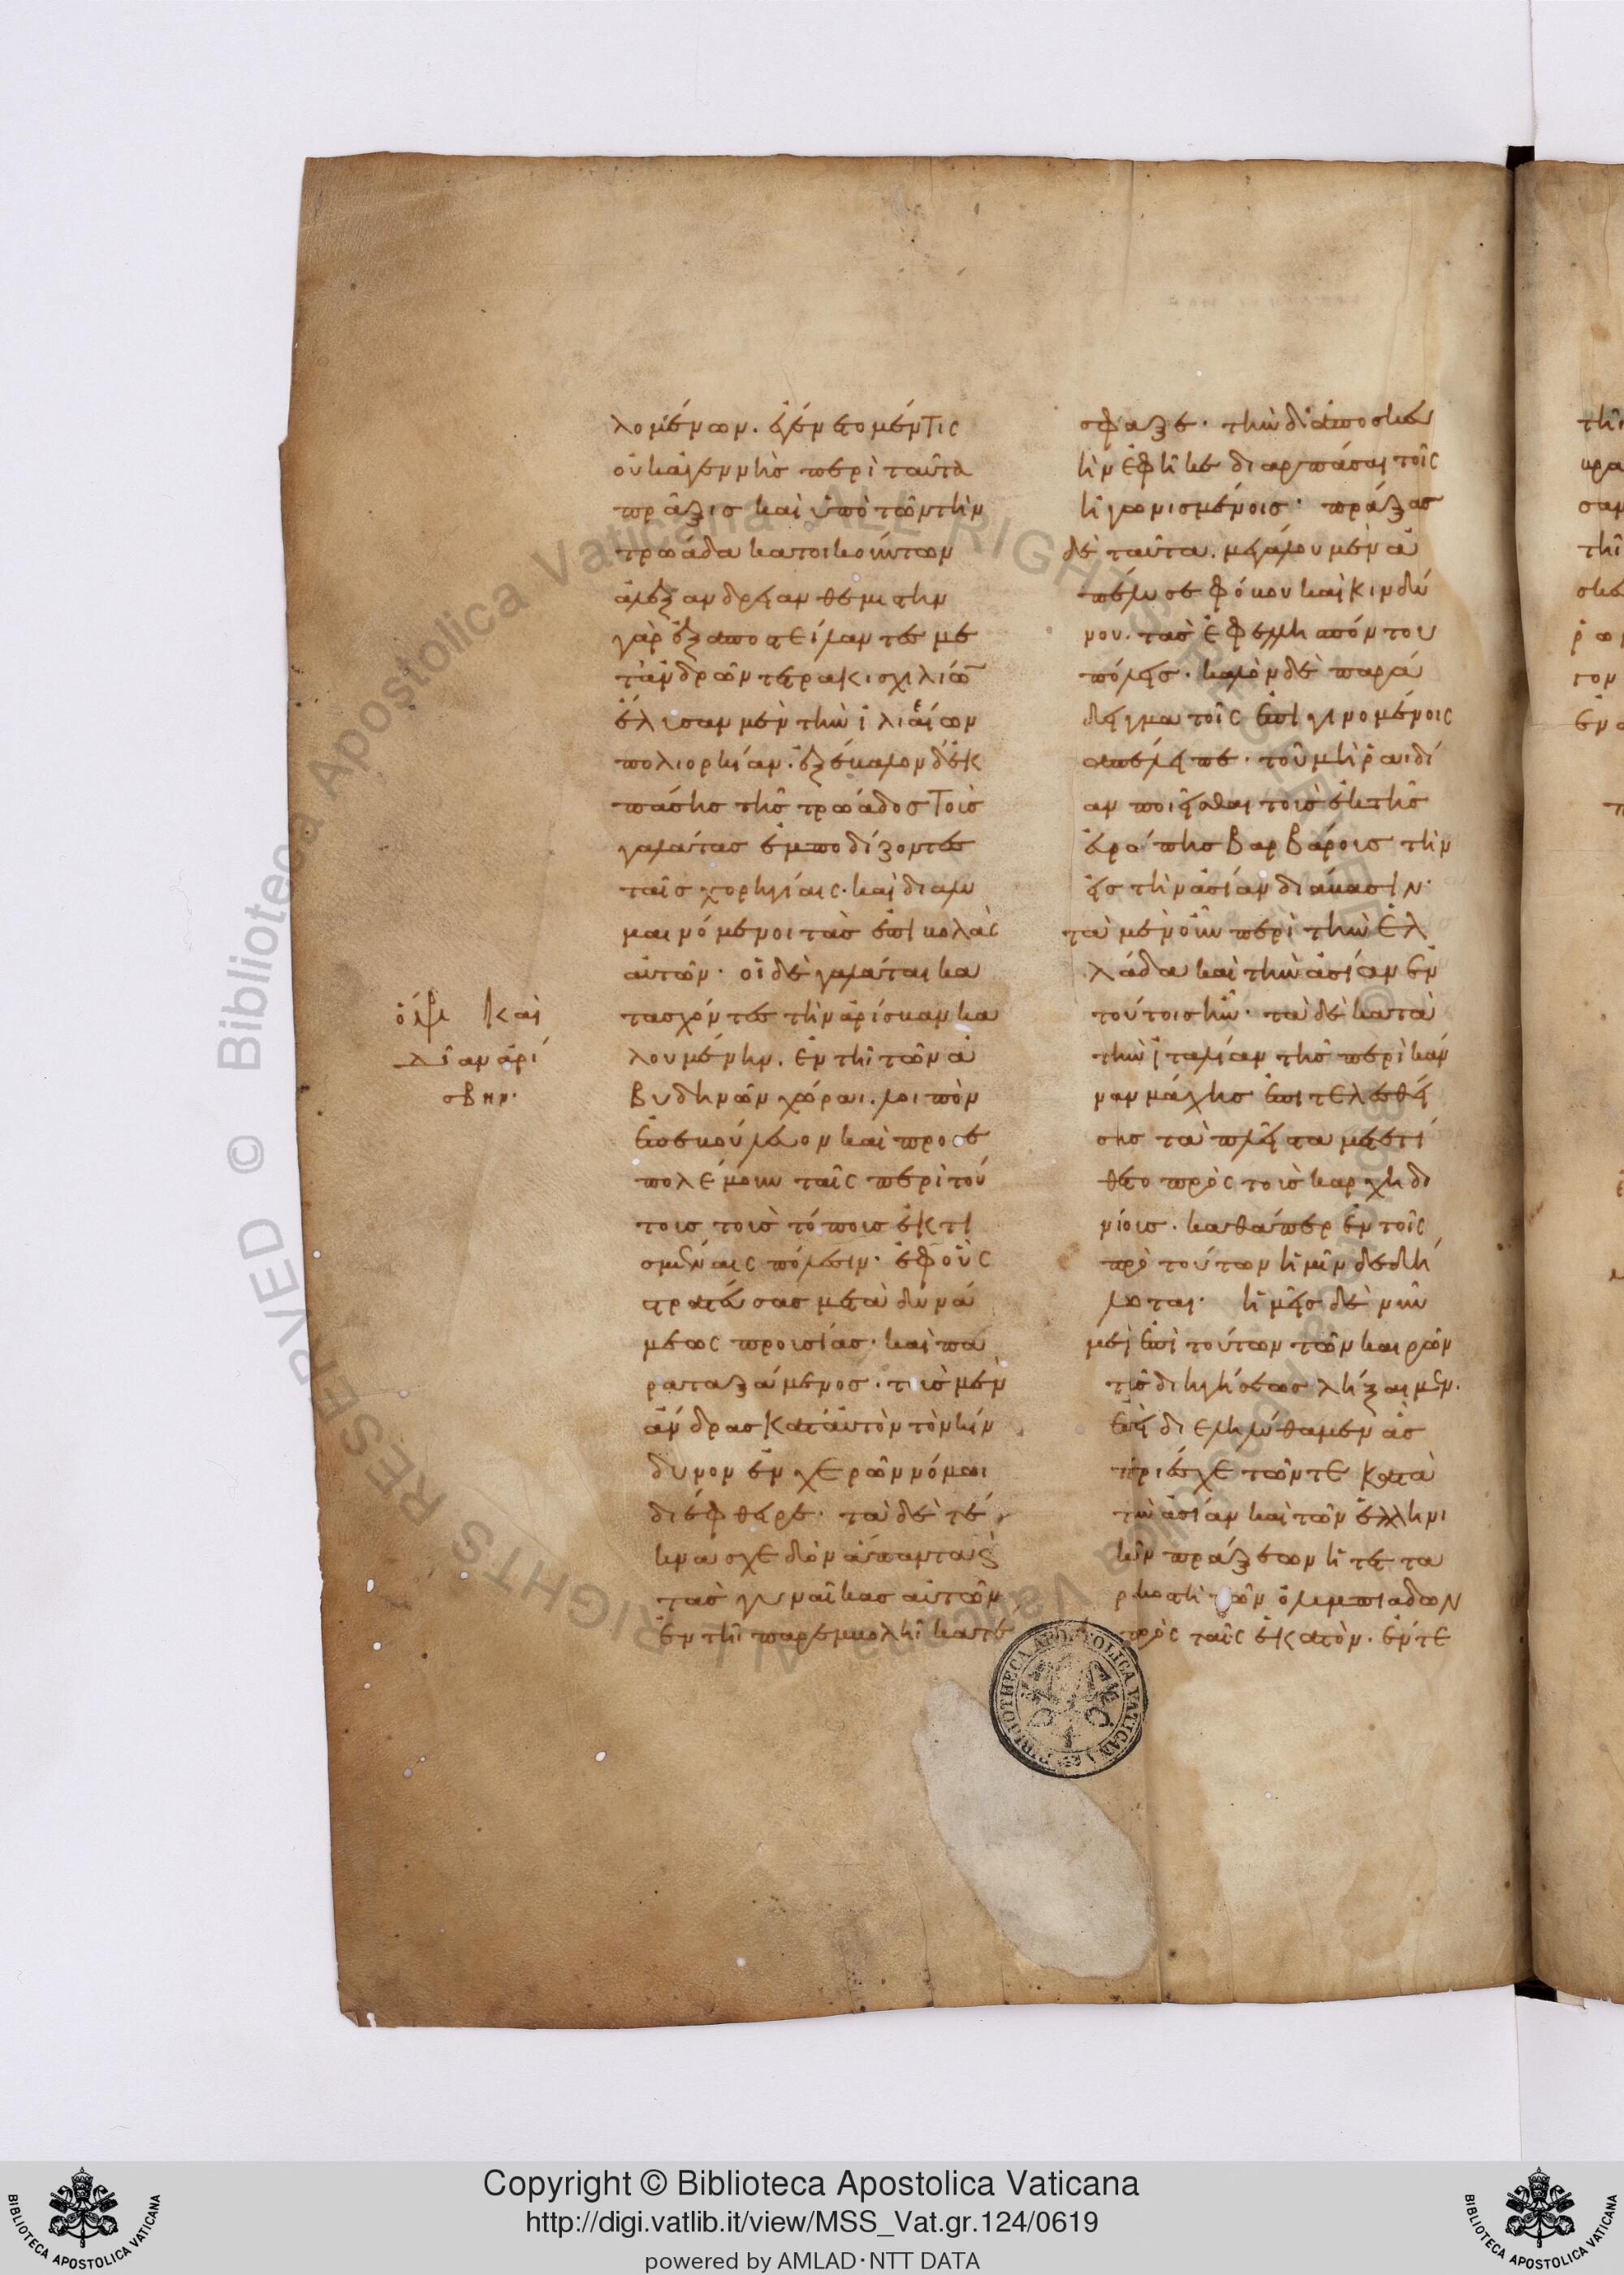 λομένων. ἐγένετο μέν τις
οὐκ ἀγεννὴς περὶ ταῦτα
πρᾶξις καὶ ὑπὸ τῶν τὴν
τρωάδα κατοικούντων
ἀλεξανδρείαν θεμιστην
γὰρ ἐξαποστείλαντες με
τ' ἀνδρῶν τετρακισχιλίων
ἔλυσαν μὲν τὴν ἰλιέων
πολιορκίαν. ἐξέβαλον δ' ἐκ
πάσης τῆς τρωάδος τοὺς
γαλάτας ἐμποδίζοντες
ταῖς χορηγίαις. καὶ διαλυ
μαινόμενοι τὰς ἐπιβολὰς
αὐτῶν. οἱ δὲ γαλάται κα
τασχόντες τὴν ἀρίσβαν κα
λουμένην. ἐν τῆι τῶν ἀ
βυδηνῶν χώραι. λοιπὸν
ἐπεβούλευον καὶ προσε
πολέμουν ταῖς περὶ τού
τοις τοῖς τόποις ἐκτι
σμέναις πόλεσιν. ἐφ' οὓς
στρατεύσας μετὰ δυνά
μεως προυσίας. καὶ πα
ραταξάμενος. τοὺς μὲν
ἄνδρας κατ' αὐτὸν τὸν κίν
δυνον ἐν χειρῶν νόμωι
διέφθειρε. τὰ δὲ τέ
κνα σχεδὸν ἅπαντα καὶ
τὰς γυναῖκας αὐτῶν
ἐν τῆι παρεμβολῆι κατέ
σφαξε. τὴν δ' ἀποσκευ
ὴν ἐφῆκε διαρπάσαι τοῖς
ἠγωνισμένοις. πράξας
δὲ ταῦτα. μεγάλου μὲν ἀ
πέλυσε φόβου καὶ κινδύ
νου. τὰς ἐφ' ἑλλησπόντου
πόλεις. καλὸν δὲ παρά
δειγμα τοῖς ἐπιγινομένοις
ἀπέλειπε. τοῦ μὴ ῥαιδί
αν ποιεῖσθαι τοὺς ἐκ τῆς
εὐρώπης βαρβάροις τὴν
εἰς τὴν ἀσίαν διάβασιν.
τὰ μὲν οὖν περὶ τὴν ἑλ
λάδα καὶ τὴν ἀσίαν ἐν
τούτοις ἦν. τὰ δὲ κατὰ
τὴν ἰταλίαν τῆς περὶ κάν
ναν μάχης ἐπιτελεσθεί
σης τὰ πλεῖστα μετετί
θετο πρὸς τοὺς καρχηδο
νίοις. καθάπερ ἐν τοῖς
πρὸ τούτων ἡμῖν δεδή
λωται. ἡμεῖς δὲ νῦν
μὲν ἐπὶ τούτων τῶν καιρῶν
τῆς διηγήσεως λήξαιμεν.
ἐπεὶ διεληλύθαμεν ἃς
περιέσχε τῶν τε κατὰ
τὴν ἀσίαν καὶ τῶν ἑλληνι
κῶν πράξεων ἡ τετα
ρκοστὴ τῶν ὀλυμπιάδων
πρὸς ταῖς ἑκατόν. ἐν τε
ἀρί
σβην.
Copyright © Biblioteca Apostolica Vaticana
http://digi.vatlib.it/view/MSS_Vat.gr.124/0619
powered by AMLAD·NTT DATA
BIBLIOTECA APOSTOLICA VATICANA
BIBLIOTECA APOSTOLICA VATICANA